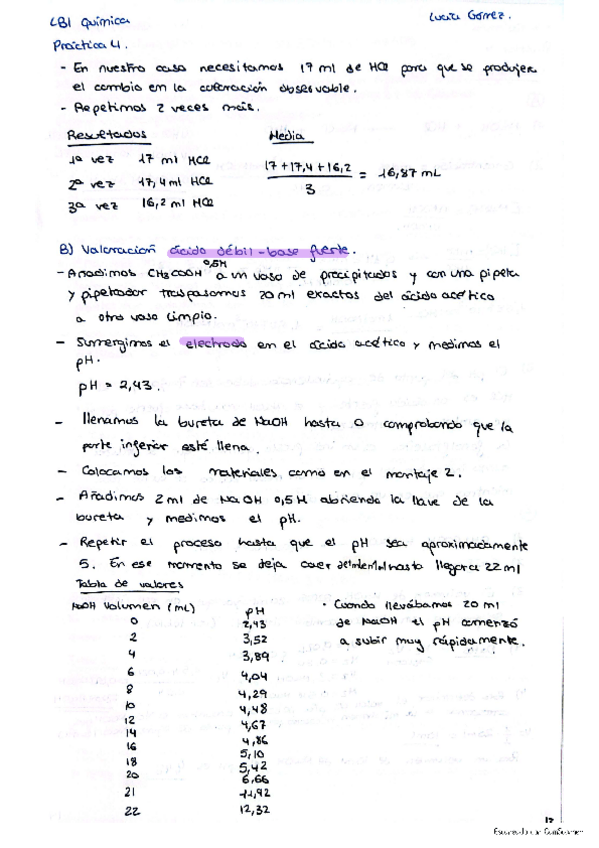 LBI Química
Lucía Gómez.
Práctica 4.
- En nuestro caso necesitamos 17 ml de HCl para que se produjera
el cambio en la coloración observable.
- Repetimos 2 veces más.
Resultados
1ª vez 17 ml HCl
2ª vez 17,4 ml HCl
3ª vez 16,2 ml HCl
Media
17+17,4+16,2
3
= 16,87 mL
B) Valoración ácido débil-base fuerte.
- Añadimos CH3COOH 0,5M a un vaso de precipitados y con una pipeta
y pipeteador traspasamos 20 ml exactos del ácido acético
a otro vaso limpio.
- Sumergimos el electrodo en el ácido acético y medimos el
pH.
pH = 2,43.
- llenamos la bureta de NaOH hasta 0 comprobando que la
parte inferior esté llena.
- Colocamos los materiales como en el montaje 2.
- Añadimos 2 ml de NaOH 0,5M abriendo la llave de la
bureta y medimos el pH.
- Repetir el proceso hasta que el pH sea aproximadamente
5. En ese momento se deja caer de 1ml en 1ml hasta llegar a 22 ml
Tabla de valores
NaOH Volumen (mL) pH
0 2,43
2 3,52
4 3,89
6 4,04
8 4,29
10 4,48
12 4,67
14 4,86
16 5,10
18 5,42
20 6,66
21 11,92
22 12,32
· Cuando llevábamos 20 ml
de NaOH el pH comenzó
a subir muy rápidamente.
17
Escaneado con CamScanner